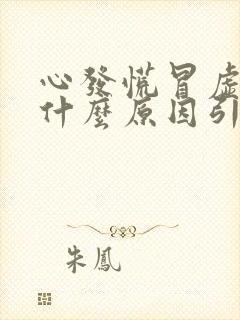 心發慌冒虛
什麼原因引
朱鳳